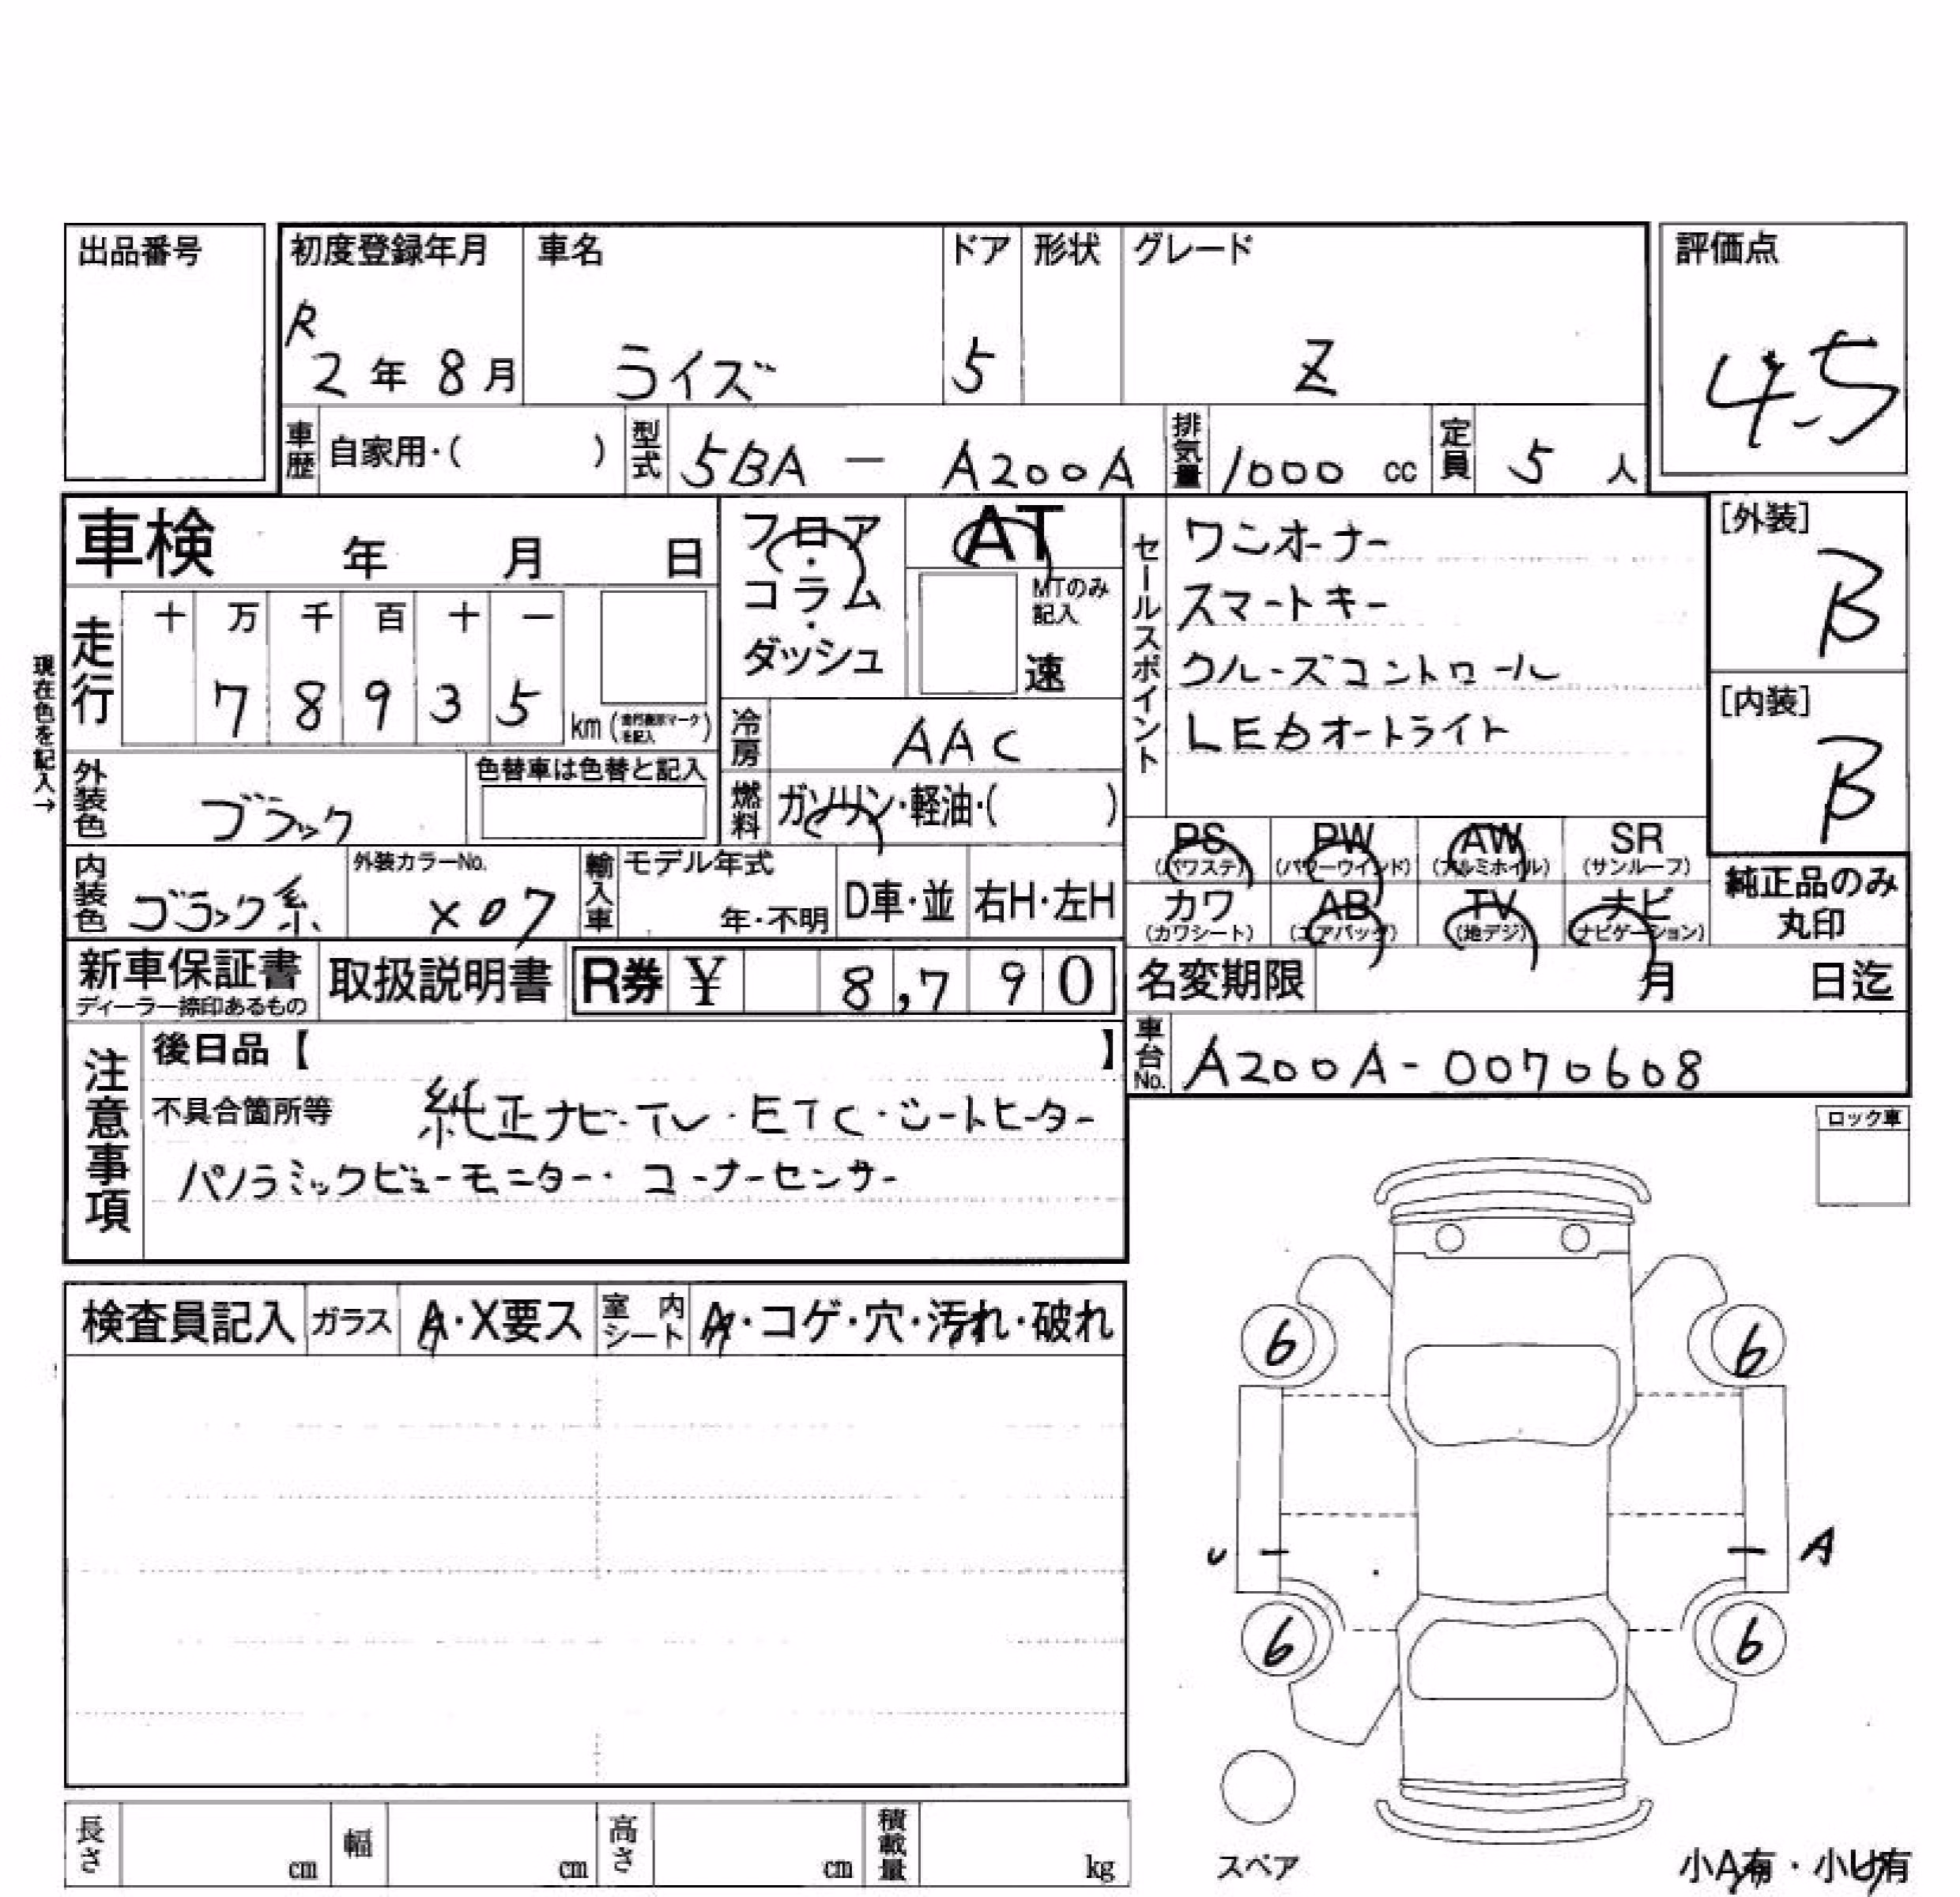 出品番号
初度登録年月 車名 ドア 形状 グレード 評価点
R 2年 8月 ライズ 5 Z 4.5
車歴 自家用・( ) 型式 5BA - A200A 排気量 1000 cc 定員 5 人
車検 年 月 日
フロア・コラム・ダッシュ
AT
MTのみ記入
速
セールスポイント
ワンオーナー
スマートキー
クルーズコントロール
LEDオートライト
[外装] B
[内装] B
現在色を記入→
走行 十 万 千 百 十 一
7 8 9 3 5 km (走行表示マークを記入)
冷房 AAC
外装色 ブラック 色替車は色替と記入
燃料 ガソリン・軽油・( )
PS (パワステ) PW (パワーウインド) AW (アルミホイル) SR (サンルーフ)
カワ (カワシート) AB (エアバッグ) TV (地デジ) ナビ (ナビゲーション)
純正品のみ丸印
内装色 ブラック系 外装カラーNo. X07 輸入車 モデル年式 年・不明 D車・並 右H・左H
新車保証書 ディーラー捺印あるもの 取扱説明書 R券 ¥ 8,790 名変期限 月 日迄
車台No. A200A-0070608
注意事項
後日品【 】
不具合箇所等 純正ナビ・TV・ETC・シートヒーター
パノラミックビューモニター・コーナーセンサー
ロック車
検査員記入 ガラス A・X要ス 室内シート A・コゲ・穴・汚れ・破れ
6 6
U A
6 6
スペア
小A有・小U有
長さ cm 幅 cm 高さ cm 積載量 kg